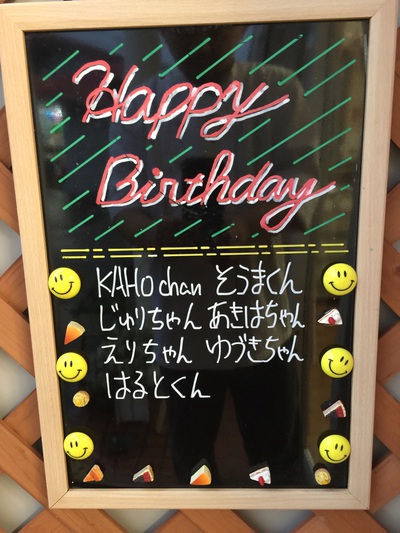 Happy
Birthday
KAHO chan そうまくん
じゅりちゃん あきはちゃん
えりちゃん ゆづきちゃん
はるとくん